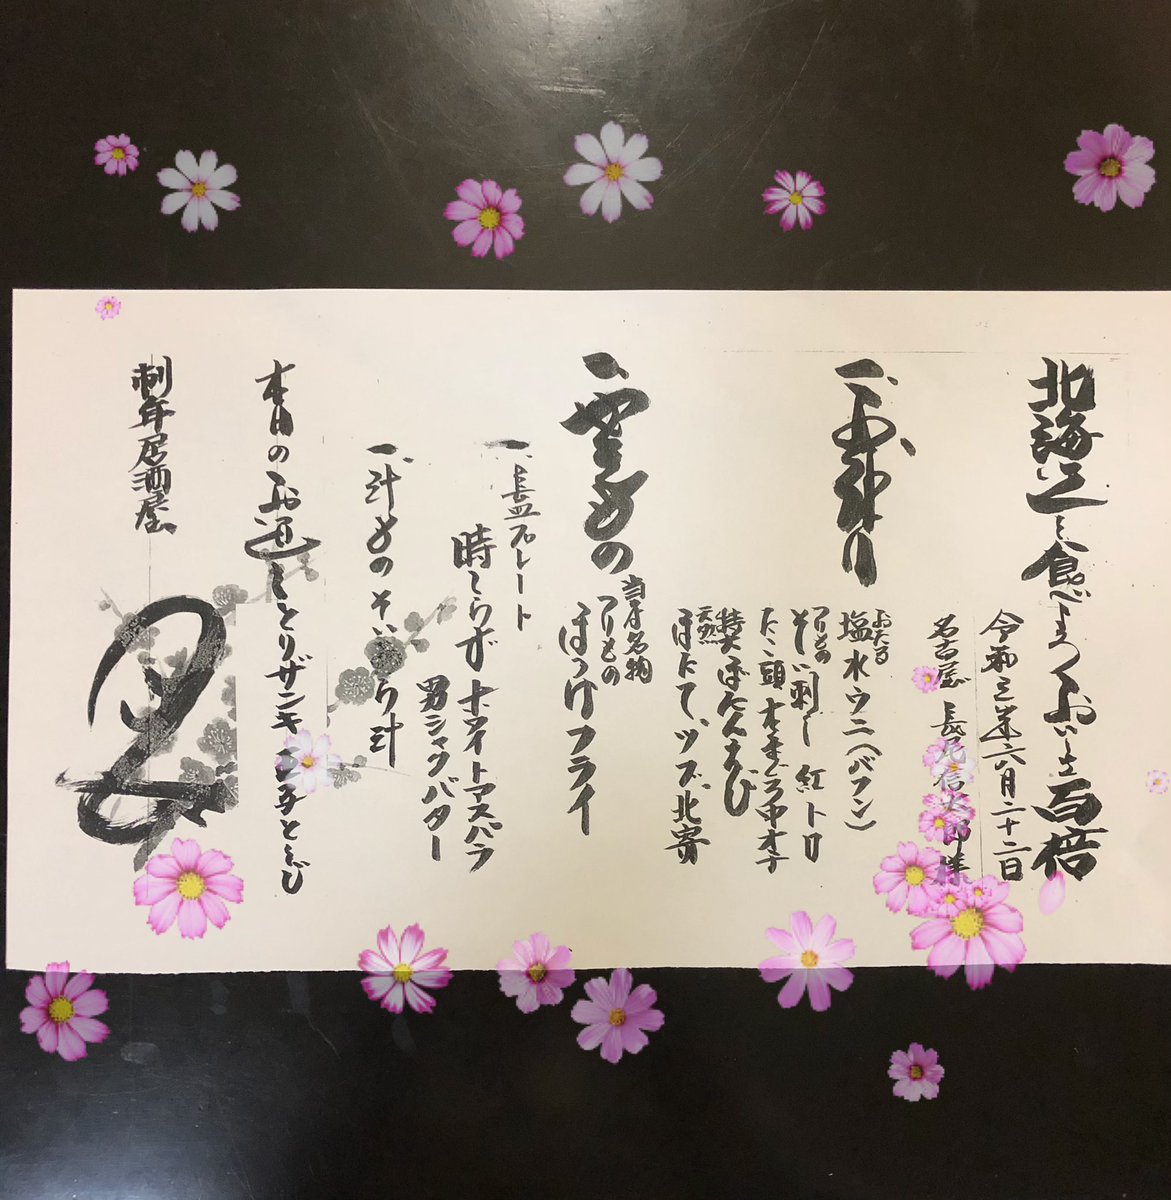 北海道を食べ おいしさ百倍
令和三年六月二十二日
名古屋 長尾信太郎様
一、お造り
おたる 塩水ウニ（バフン）
つりもの そい刺し 紅トロ
たこ頭 本まぐろ中オチ
特大ぼたんえび
天然ほたて ツブ 北寄
一、 もの
当店名物
つりもの
ほっけフライ
一、長皿プレート
時しらず ホワイトアスパラ
男シャクバター
一、汁もの そいあら汁
本日のお通し とりザンギ玉子とじ
居酒屋